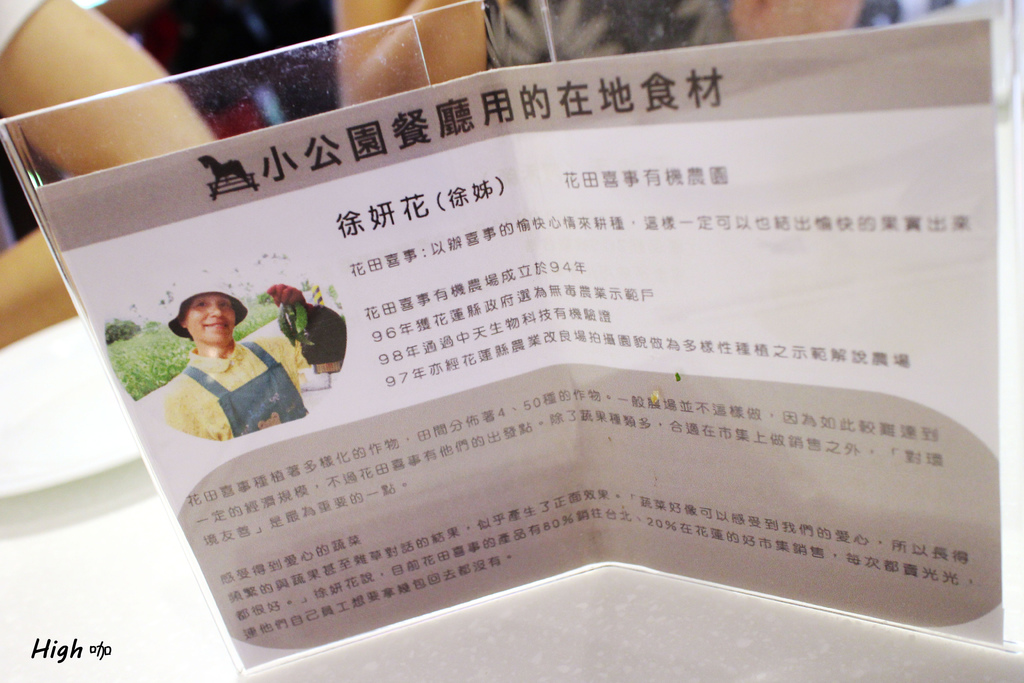 小公園餐廳用的在地食材
徐妍花(徐姊) 花田喜事有機農園
花田喜事:以辦喜事的愉快心情來耕種,這樣一定可以也結出愉快的果實出來
花田喜事有機農場成立於94年
96年獲花蓮縣政府選為無毒農業示範戶
98年通過中天生物科技有機驗證
97年亦經花蓮縣農業改良場拍攝園貌做為多樣性種植之示範解說農場
花田喜事種植著多樣化的作物,田間分佈著4、50種的作物。一般農場並不這樣做,因為如此較難達到
一定的經濟規模,不過花田喜事有他們的出發點。除了蔬果種類多,合適在市集上做銷售之外,「對環
境友善」是最為重要的一點。
感受得到愛心的蔬菜
頻繁的與蔬果甚至雜草對話的結果,似乎產生了正面效果。「蔬菜好像可以感受到我們的愛心,所以長得
都很好。」徐妍花說,目前花田喜事的產品有80%銷往台北、20%在花蓮的好市集銷售,每次都賣光光,
連他們自己員工想要拿幾包回去都沒有。
High 咖